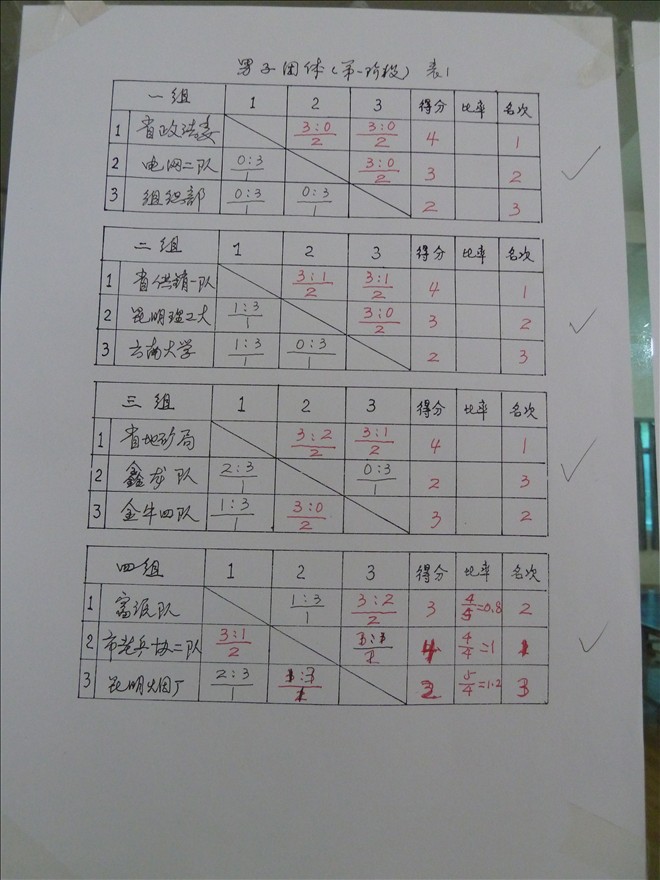 男子团体(第一阶段) 表1
一组 1 2 3 得分 比率 名次
1 省政法委 3:0/2 3:0/2 4 1
2 电网二队 0:3/1 3:0/2 3 2
3 组织部 0:3/1 0:3/1 2 3
二组 1 2 3 得分 比率 名次
1 省供销一队 3:1/2 3:1/2 4 1
2 昆明理工大 1:3/1 3:0/2 3 2
3 云南大学 1:3/1 0:3/1 2 3
三组 1 2 3 得分 比率 名次
1 省地矿局 3:2/2 3:1/2 4 1
2 鑫龙队 2:3/1 0:3/1 2 3
3 金牛四队 1:3/1 3:0/2 3 2
四组 1 2 3 得分 比率 名次
1 队 1:3/1 3:2/2 3 4/5=0.8 2
2 市老兵协二队 3:1/2 4 4/4=1 1
3 昆明火因厂 2:3/1 2 5/4=1.2 3